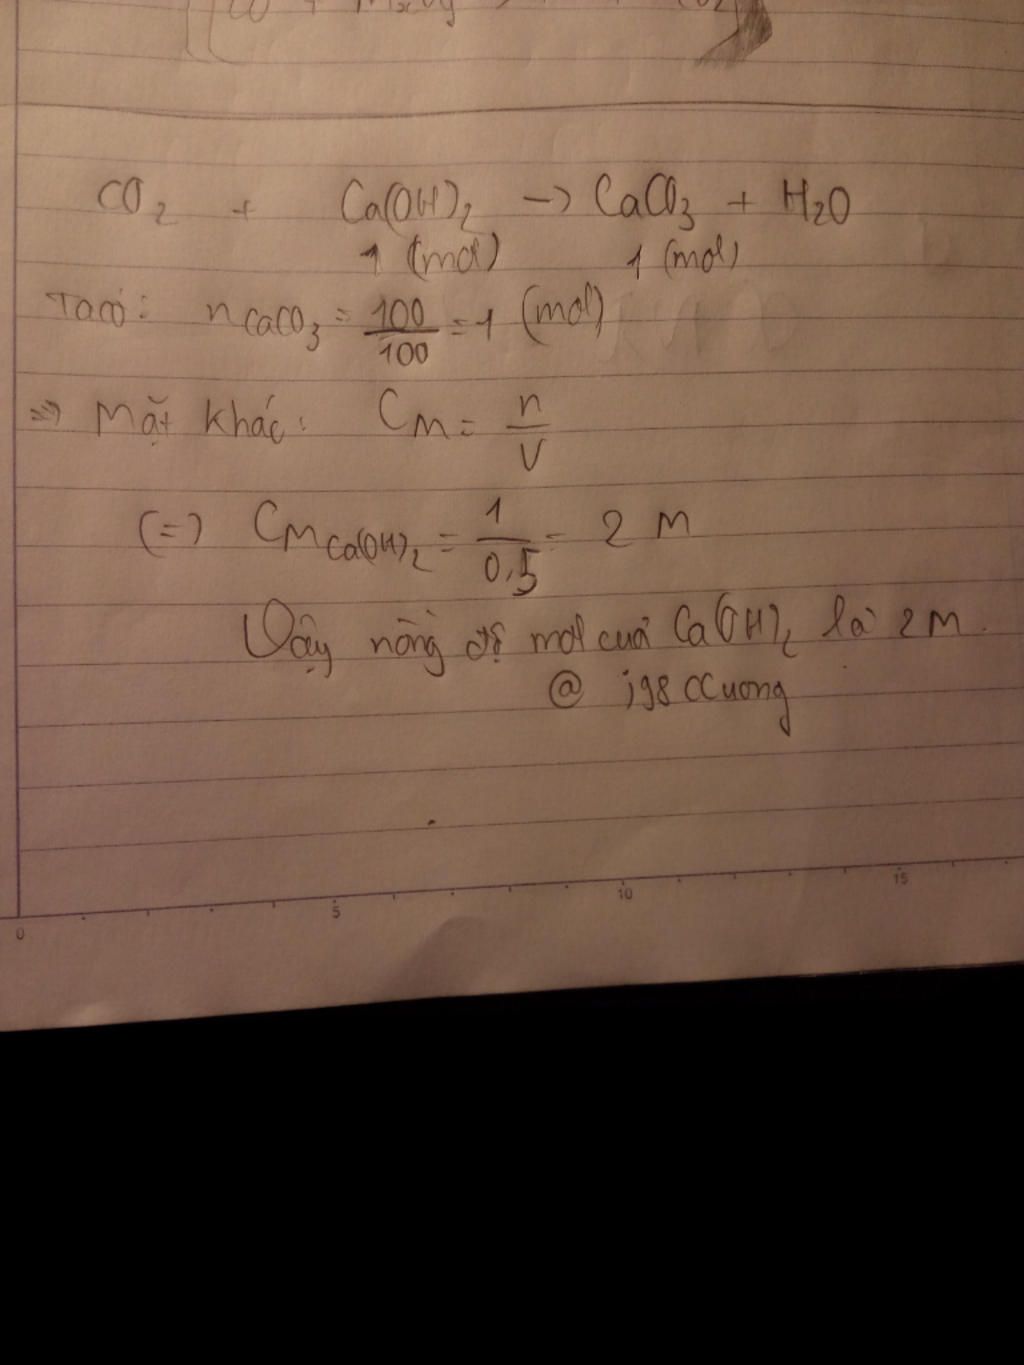 CO2 + Ca(OH)2 -> CaCO3 + H2O
1 (mol) 1 (mol)
Ta có: nCaCO3 = 100/100 = 1 (mol)
=> Mặt khác: CM = n/V
(=) CM Ca(OH)2 = 1/0,5 = 2 M
Vậy nồng độ mol của Ca(OH)2 là 2M.
@ j98 CCuong
0 5 10 15